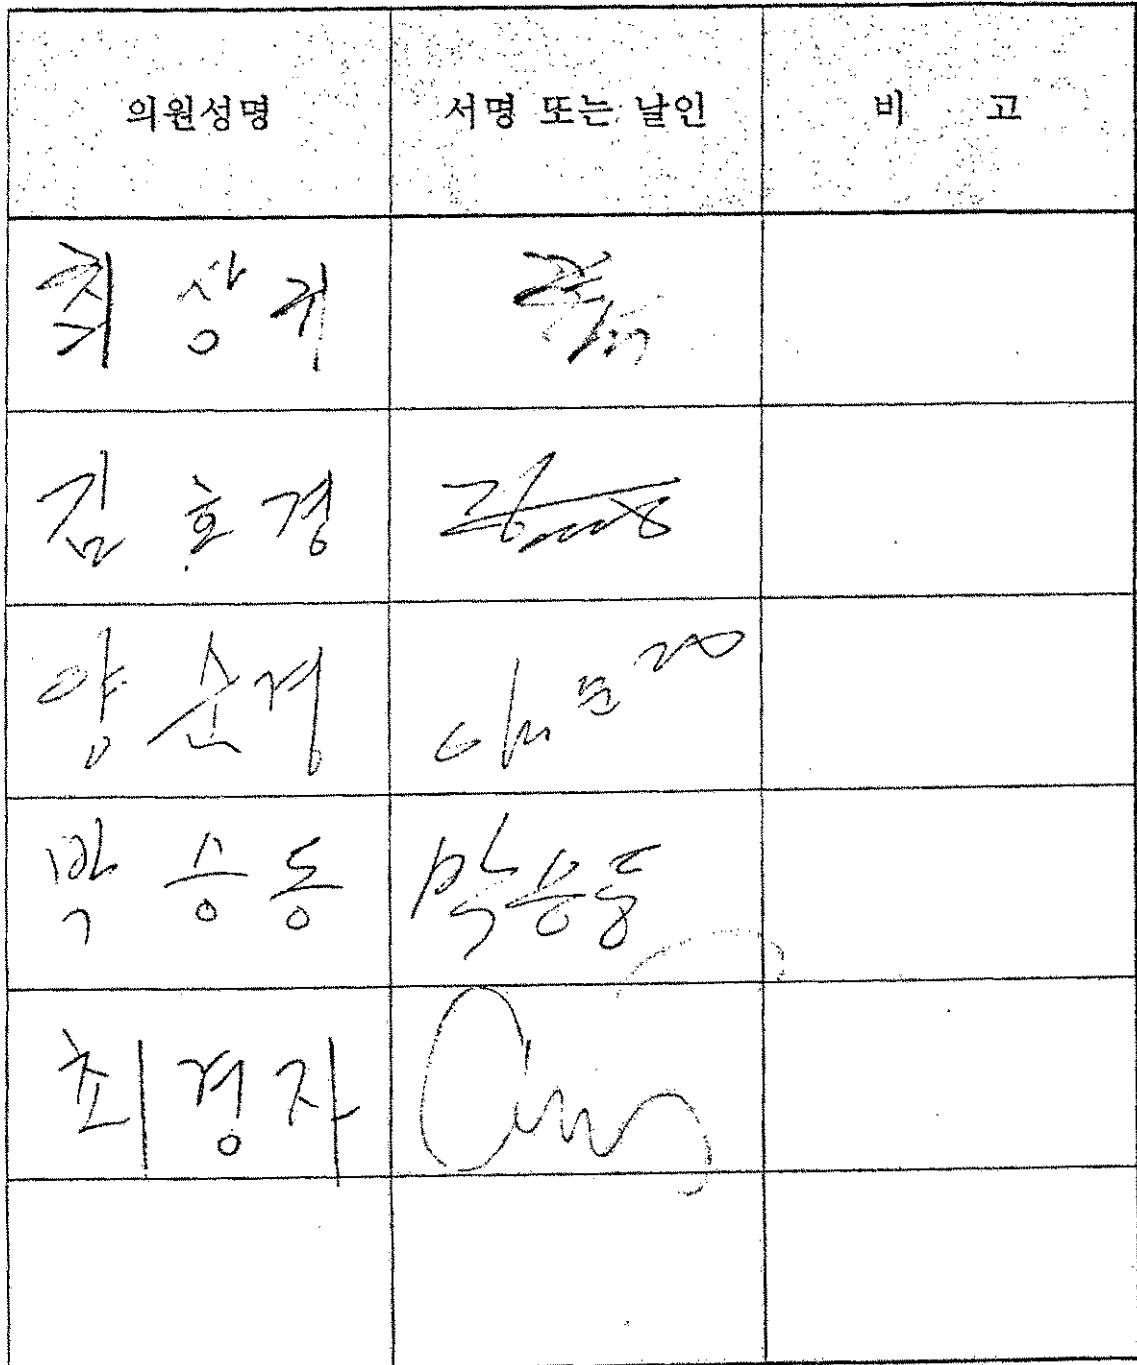 의원성명 서명 또는 날인 비 고
최상귀
김호경
양순경
박승동 박승동
최경자